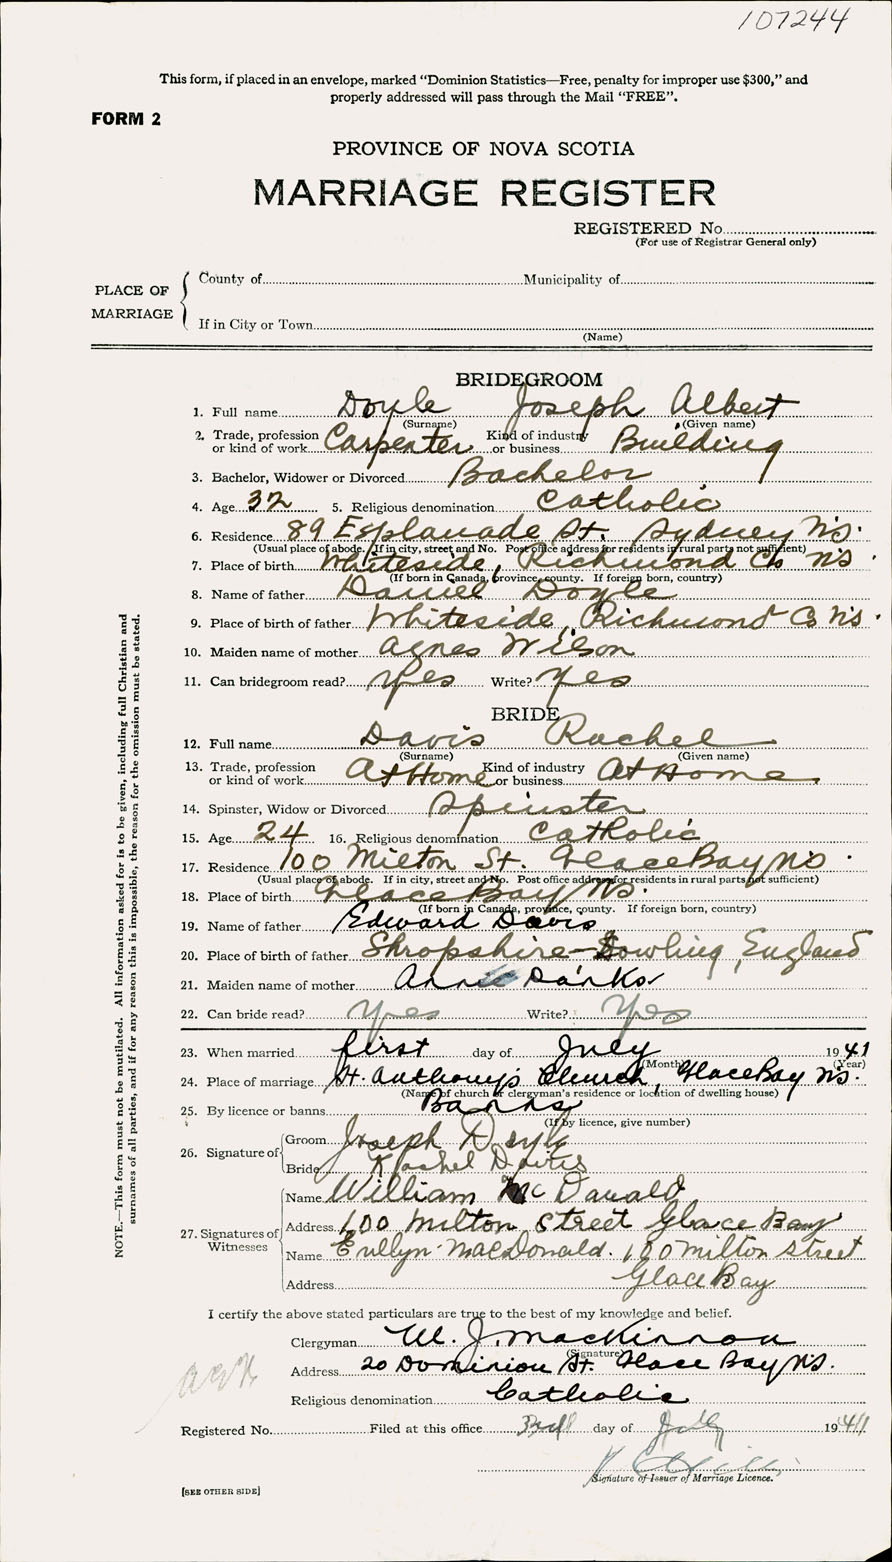 107244
This form, if placed in an envelope, marked "Dominion Statistics—Free, penalty for improper use $300," and
properly addressed will pass through the Mail "FREE".
FORM 2
PROVINCE OF NOVA SCOTIA
MARRIAGE REGISTER
REGISTERED No.
(For use of Registrar General only)
PLACE OF MARRIAGE
County of Municipality of
If in City or Town
(Name)
BRIDEGROOM
1. Full name Doyle Joseph Albert
(Surname) (Given name)
2. Trade, profession or kind of work Carpenter Kind of industry or business Building
3. Bachelor, Widower or Divorced Bachelor
4. Age 32 5. Religious denomination Catholic
6. Residence 89 Esplanade St. Sydney N.S.
(Usual place of abode. If in city, street and No. Post office address for residents in rural parts not sufficient)
7. Place of birth Whiteside, Richmond Co NS
(If born in Canada, province, county. If foreign born, country)
8. Name of father Daniel Doyle
9. Place of birth of father Whiteside, Richmond Co N.S.
10. Maiden name of mother Agnes Wilson
11. Can bridegroom read? Yes Write? Yes
BRIDE
12. Full name Davis Rachel
(Surname) (Given name)
13. Trade, profession or kind of work At Home Kind of industry or business At Home
14. Spinster, Widow or Divorced Spinster
15. Age 24 16. Religious denomination Catholic
17. Residence 100 Milton St. Glace Bay NS.
(Usual place of abode. If in city, street and No. Post office address for residents in rural parts not sufficient)
18. Place of birth Glace Bay NS.
(If born in Canada, province, county. If foreign born, country)
19. Name of father Edward Davis
20. Place of birth of father Shropshire- England
21. Maiden name of mother Annie Danks
22. Can bride read? Yes Write? Yes
23. When married first day of July 1941
(Month) (Year)
24. Place of marriage St. Anthony's Church, Glace Bay NS.
(Name of church or clergyman's residence or location of dwelling house)
25. By licence or banns Banns
(If by licence, give number)
26. Signature of
Groom Joseph Doyle
Bride Rachel Davis
27. Signatures of Witnesses
Name William McDanald
Address 100 Milton Street Glace Bay
Name Evllyn MacDonald. 100 Milton Street
Address Glace Bay
I certify the above stated particulars are true to the best of my knowledge and belief.
Clergyman W. J. MacKinnon
(Signature)
Address 20 Dominion St. Glace Bay NS.
Religious denomination Catholic
Registered No. Filed at this office day of July 1941
Signature of Issuer of Marriage Licence.
[SEE OTHER SIDE]
NOTE.—This form must not be mutilated. All information asked for is to be given, including full Christian and
surnames of all parties, and if for any reason this is impossible, the reason for the omission must be stated.